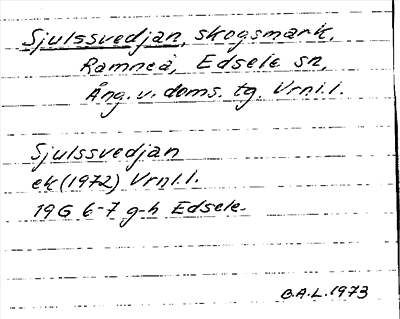 Sjulssvedjan, skogsmark,
Ramneå, Edsele sn,
Ång. v. doms. tg. Vrnl.l.
Sjulssvedjan
ek (1972) Vrnl.l.
19G 6-7 g-h Edsele.
B.A.L. 1973